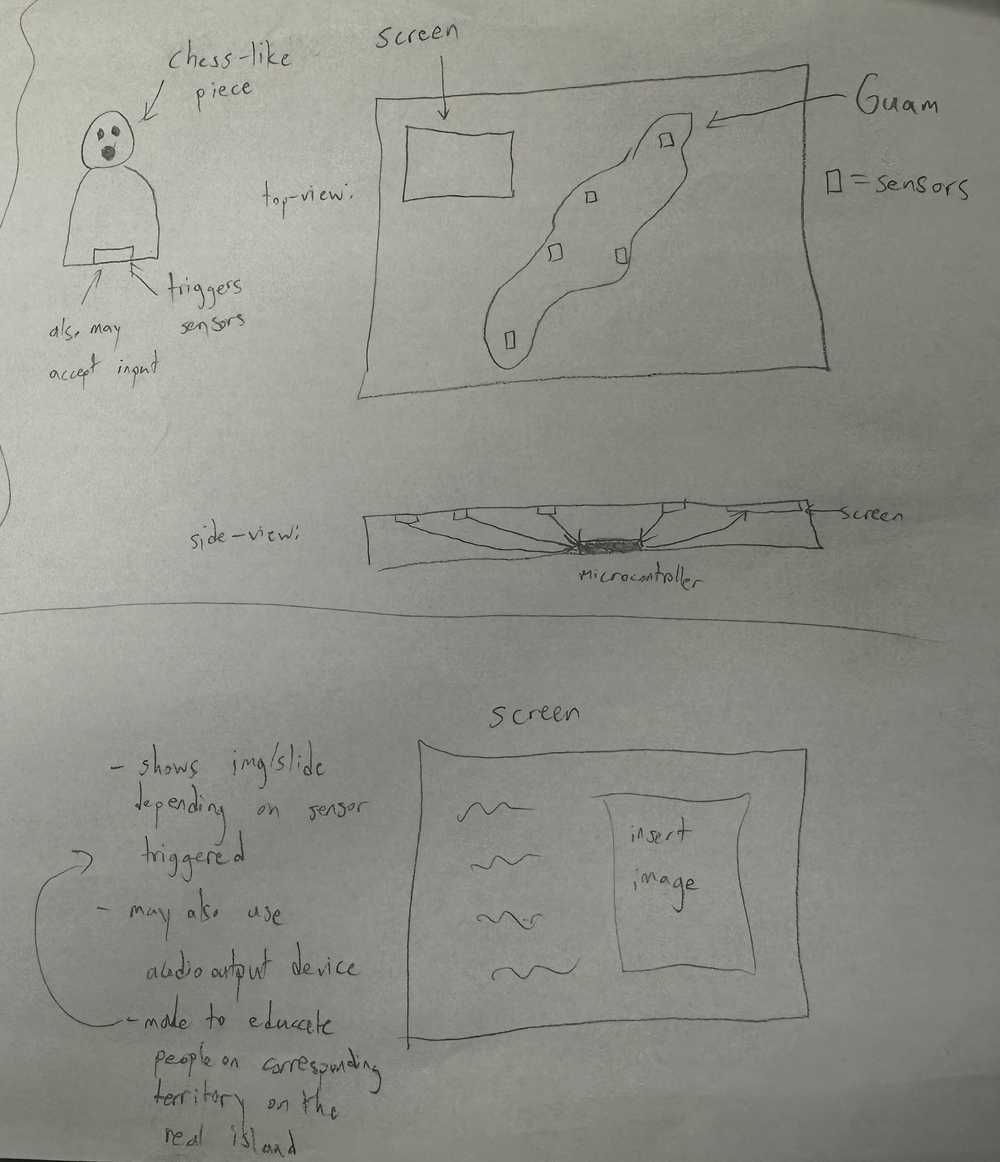 chess-like
piece
also may
accept input
triggers
sensors
screen
top-view:
Guam
▯ = sensors
side-view:
screen
microcontroller
screen
- shows img/slide
depending on sensor
triggered
- may also use
audio output device
- made to educate
people on corresponding
territory on the
real island
insert
image